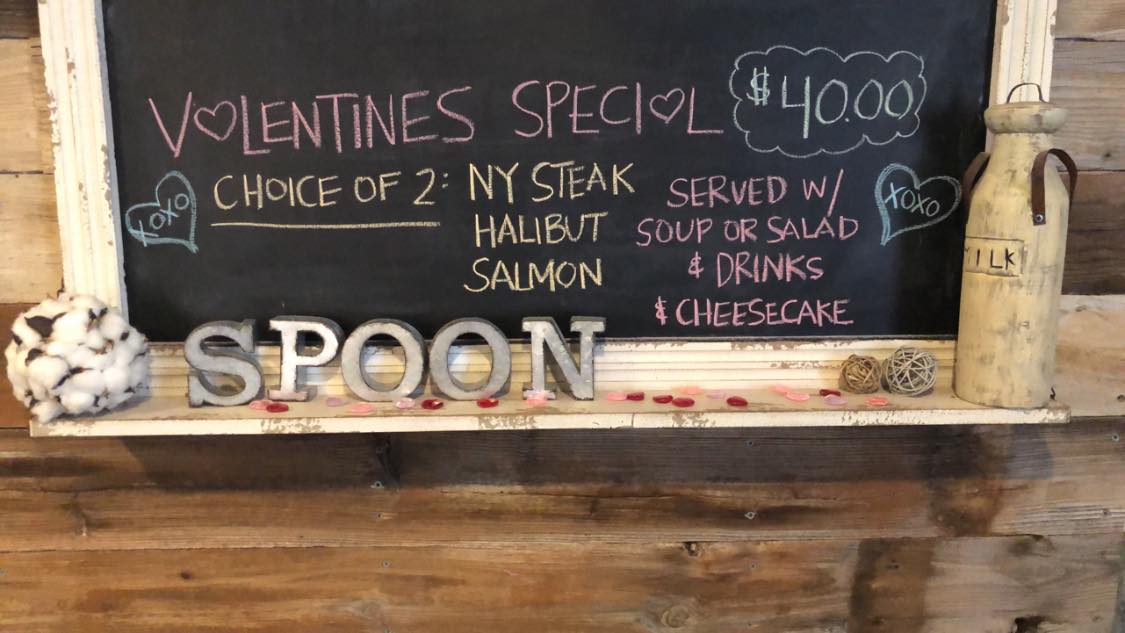 V♡LENTINES SPECI♡L $40.00
CHOICE OF 2: NY STEAK
HALIBUT
SALMON
SERVED W/
SOUP OR SALAD
& DRINKS
& CHEESECAKE
XOXO
XOXO
SPOON
MILK